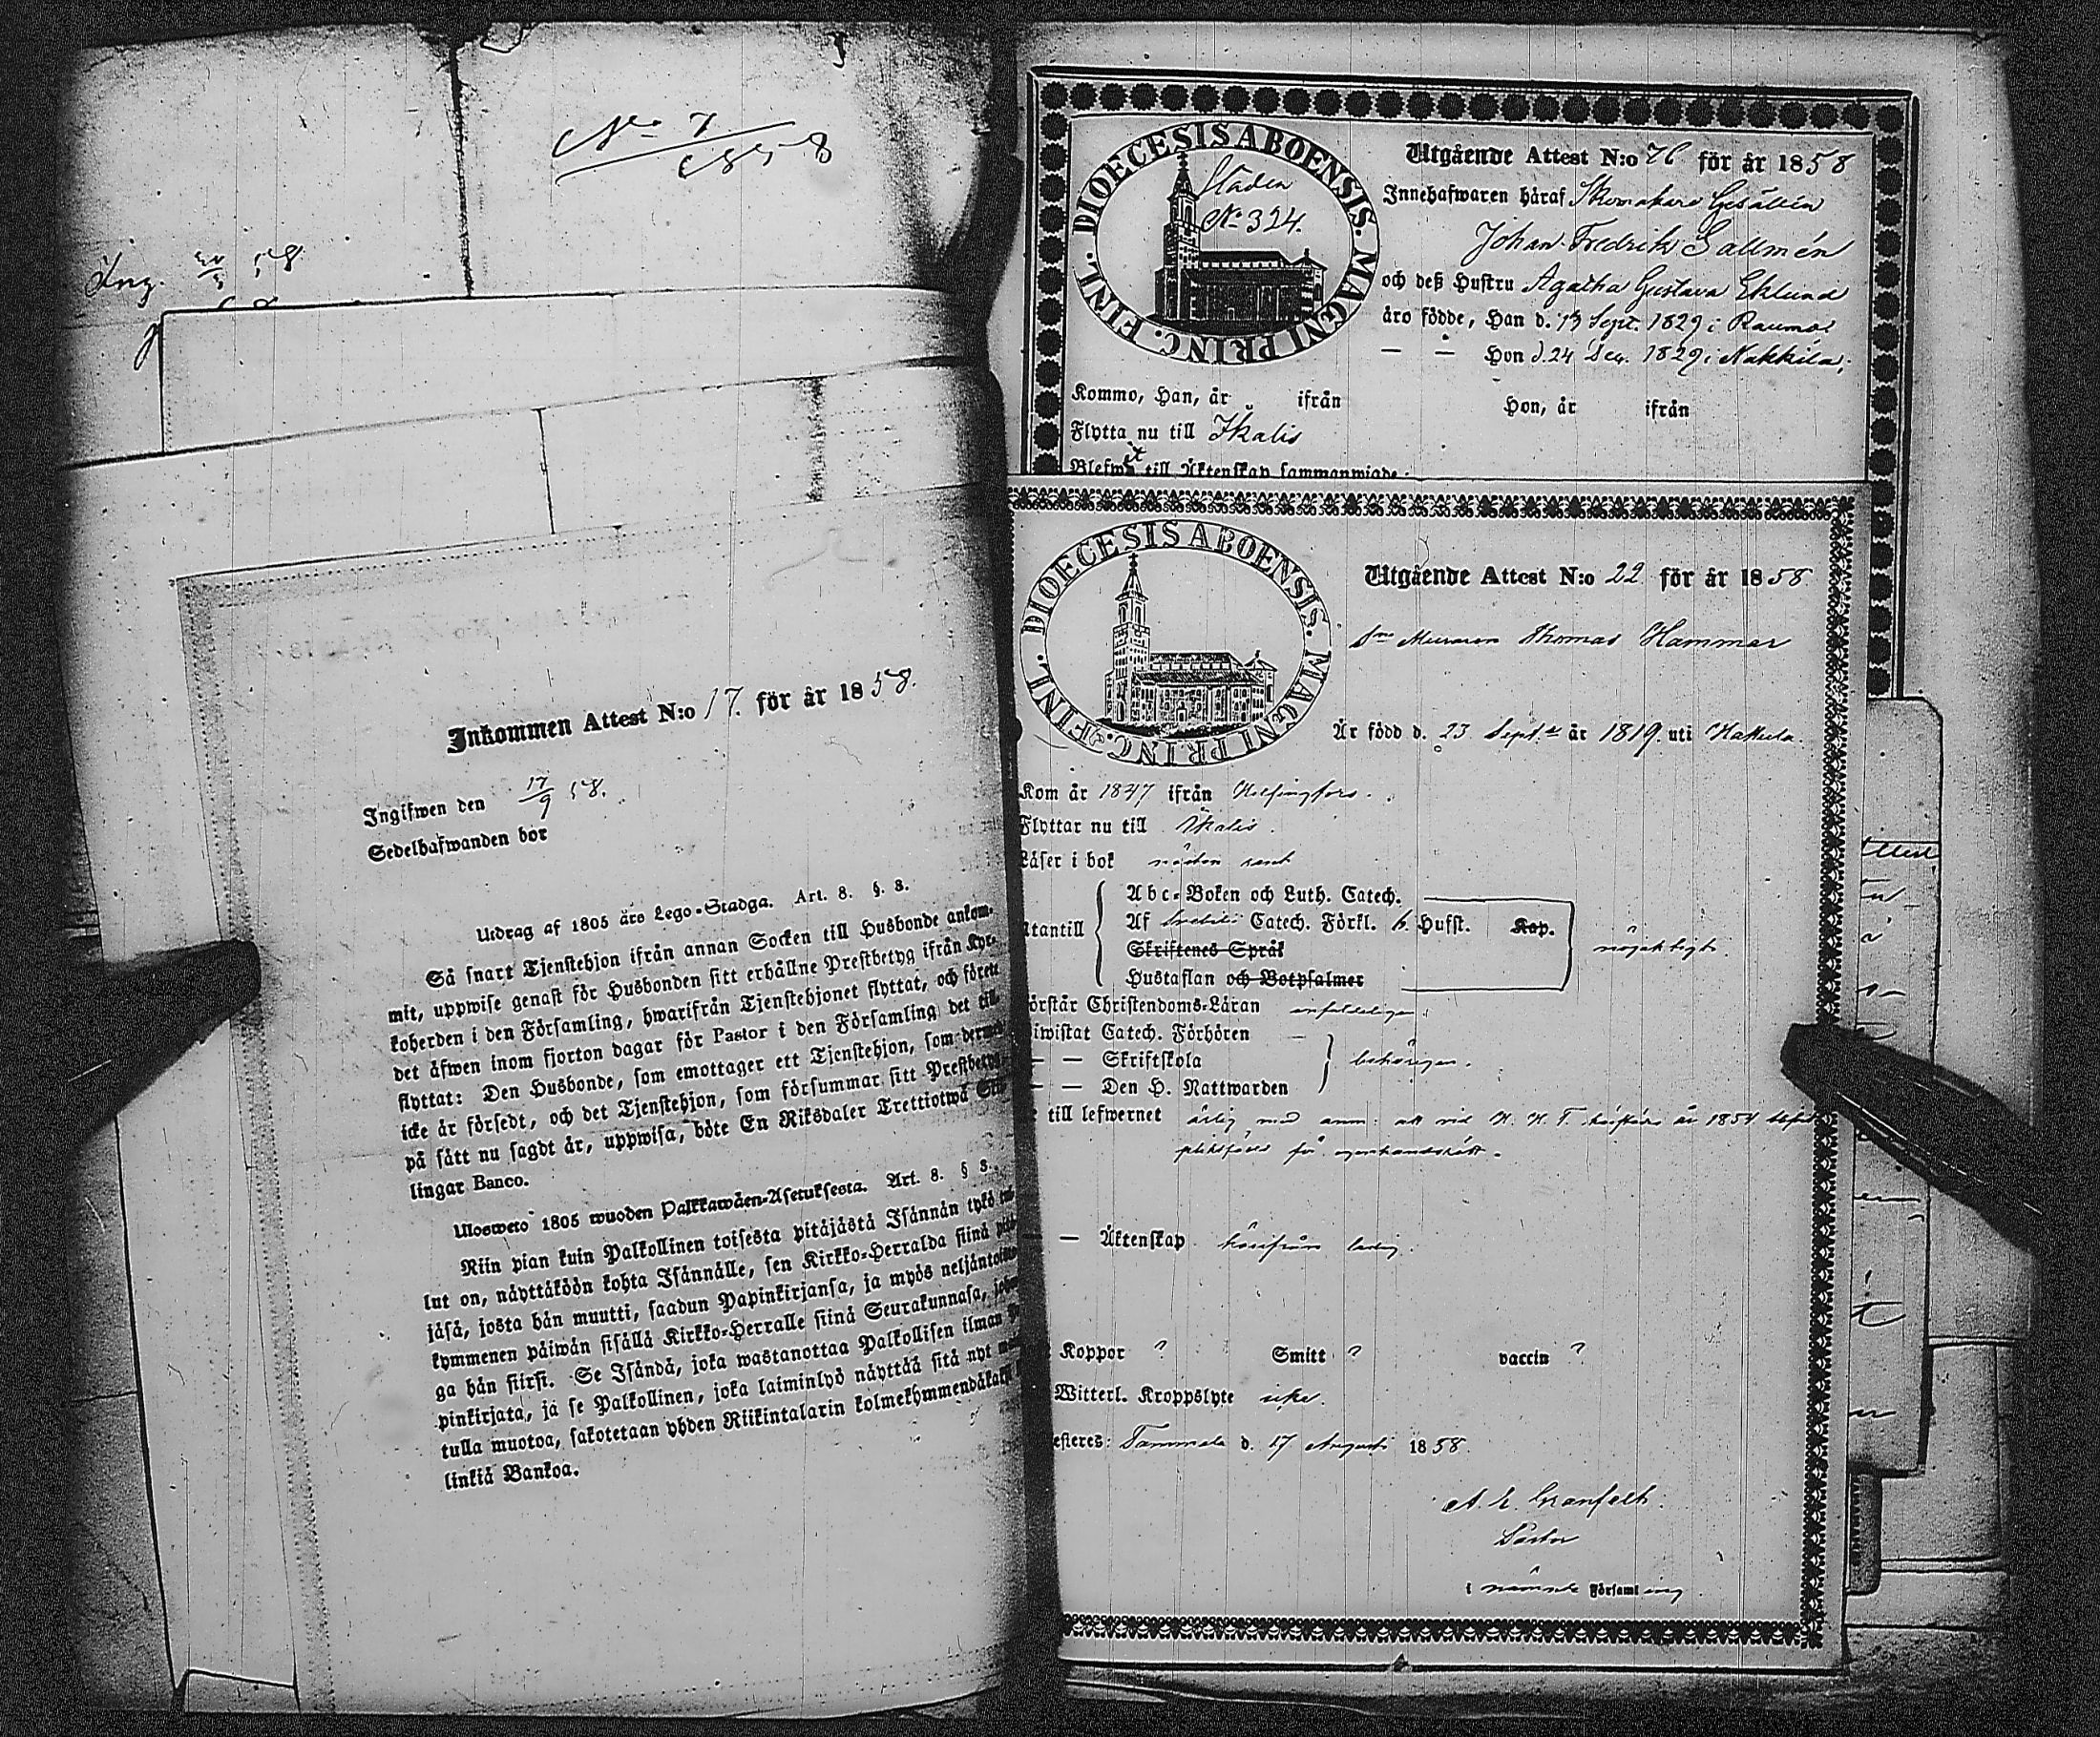 No 7
1858
Ing. 20/5 58
Inkommen Attest N:o 17. för år 1858.
Ingifwen den 17/9 58.
Sedelhafwanden bor
Utdrag af 1805 års Lego-Stadga. Art. 8. §. 8.
Så snart Tjenstehjon ifrån annan Socken till Husbonde ankom-
mit, uppwise genast för Husbonden sitt erhållne Prestbetyg ifrån Kyr-
koherden i den Församling, hwarifrån Tjenstehjonet flyttat, och förete
det äfwen inom fjorton dagar för Pastor i den Församling det till
flyttat: Den Husbonde, som emottager ett Tjenstehjon, som dermed
icke är försedt, och det Tjenstehjon, som försummar sitt Prestbetyg
på sätt nu sagdt är, uppwisa, böte En Riksdaler Trettiotwå Skil
lingar Banco.
Ulosweto 1805 wuoden Palkkawäen-Asetuksesta. Art. 8. § 8.
Niin pian kuin Palkollinen toisesta pitäjästä Isännän tykö tul
lut on, näyttäköön kohta Isännälle, sen Kirkko-Herralda siinä pitä
jäsä, josta hän muutti, saadun Papinkirjansa, ja myös neljäntoista
kymmenen päiwän sisällä Kirkko-Herralle siinä Seurakunnasa, johon
ga hän siirsi. Se Isändä, joka wastanottaa Palkollisen ilman Pa
pinkirjata, ja se Palkollinen, joka laiminlyö näyttää sitä nyt
tulla muotoa, sakotetaan yhden Riikintalarin kolmekymmendäkaksi
linkiä Bankoa.
DIOECESIS ABOENSIS. MAGNI PRINC. FINL.
Staden
No 324.
Utgående Attest N:o 76 för år 1858
Innehafwaren håraf Skomakare Gesällen
Johan Fredrik Sallmén
och deß Hustru Agatha Gustava Eklund
äro födde, Han d. 13 Sept. 1829 i Raumo;
— — Hon d. 24 Dec. 1829 i Nakkila;
Kommo, Han, år ifrån Hon, år ifrån
Flytta nu till Ikalis
Blefwo till Äktenskap sammanwigde
DIOECESIS ABOENSIS. MAGNI PRINC. FINL.
Utgående Attest N:o 22 för år 1858
Muraren Thomas Hammar
Är född d. 23 Sept. år 1819. uti
Kom år 1847 ifrån Helsingfors.
Flyttar nu till Ikalis.
Läser i bok nästan rent
Utantill
Abc-Boken och Luth. Catech.
Af Catech. Förkl. 6. Hufst. Kap.
Skriftenes Språk
Hustaflan och Botpsalmer
nöjaktigt.
örstår Christendoms-Läran enfaldeligen.
iwistat Catech. Förhören —
— — Skriftskola
— — Den H. Nattwarden
behörigen.
till lefwernet ärlig med anm: att vid H. H. T. år 1854
pliktfälld för egenhandsrätt.
— Äktenskap härifrån ledig.
Koppor ? Smitt ? vaccin ?
Witterl. Kroppslyte icke.
esteres: Tammela d. 17 Augusti 1858.
A. E. Granfelt.
Pastor
i nämnde Församling.